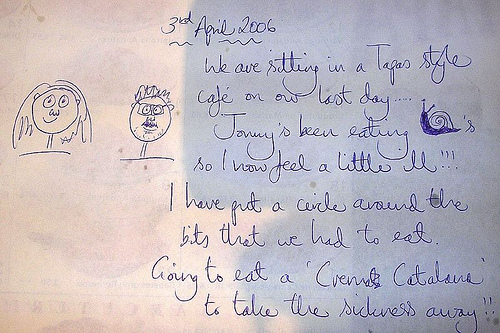 3rd April 2006
We are sitting in a Tapas style
café on our last day....
Jonny's been eating 's
so I now feel a little ill!!!
I have put a circle around the
bits that we had to eat.
Going to eat a 'Crema Catalana'
to take the sickness away!!